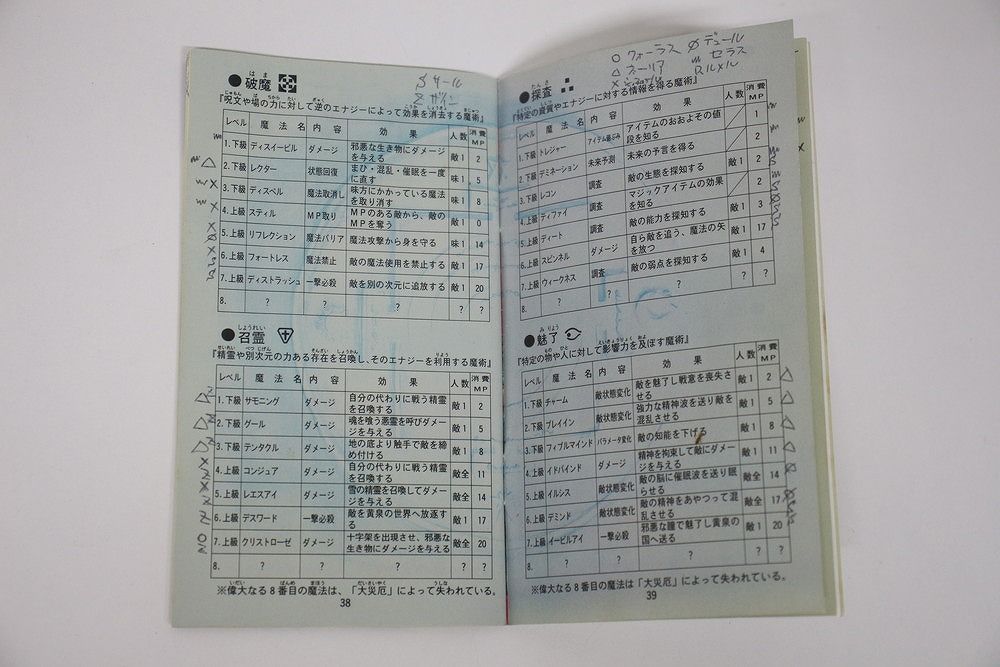 Sサール
Zザイン
はま
●破魔
じゅもん ば ちから たい ぎゃく こうか しょうきょ まじゅつ
『呪文や場の力に対して逆のエナジーによって効果を消去する魔術』
レベル 魔法名 内容 効果 人数 消費MP
1.下級 ディスイービル ダメージ 邪悪な生き物にダメージを与える 敵1 2
2.下級 レクター 状態回復 まひ・混乱・催眠を一度に直す 味1 5
3.下級 ディスペル 魔法取消し 味方にかかっている魔法を取り消す 味1 8
4.上級 スティル MP取り MPのある敵から、敵のMPを奪う 敵1 0
5.上級 リフレクション 魔法バリア 魔法攻撃から身を守る 味1 14
6.上級 フォートレス 魔法禁止 敵の魔法使用を禁止する 敵1 17
7.上級 ディストラッシュ 一撃必殺 敵を別の次元に追放する 敵1 20
8. ? ? ? ? ?
しょうれい
●召霊
せいれい べつじげん ちから そんざい しょうかん りよう まじゅつ
『精霊や別次元の力ある存在を召喚し、そのエナジーを利用する魔術』
レベル 魔法名 内容 効果 人数 消費MP
1.下級 サモニング ダメージ 自分の代わりに戦う精霊を召喚する 敵1 2
2.下級 グール ダメージ 魂を喰う悪霊を呼びダメージを与える 敵1 5
3.下級 テンタクル ダメージ 地の底より触手で敵を締め付ける 敵1 8
4.上級 コンジュア ダメージ 自分の代わりに戦う精霊を召喚する 敵全 11
5.上級 レエスアイ ダメージ 雪の精霊を召喚してダメージを与える 敵全 14
6.上級 デスワード 一撃必殺 敵を黄泉の世界へ放逐する 敵1 17
7.上級 クリストローゼ ダメージ 十字架を出現させ、邪悪な生き物にダメージを与える 敵全 20
8. ? ? ? ? ?
いだい ばんめ まほう だいさいやく うしな
※偉大なる8番目の魔法は、「大災厄」によって失われている。
38
○フォーラス Øデュール
△ネーリア
セラス
ルメル
たんさ
●探査
『特定の資質やエナジーに対する情報を得る魔術』
レベル 魔法名 内容 効果 人数 消費MP
1.下級 トレジャー アイテム値ぶみ アイテムのおおよその値段を知る 1
2.下級 デミネーション 未来予測 未来の予言を得る 2
3.下級 レコン 調査 敵の生態を探知する 敵1 2
4.上級 ディファイ 調査 マジックアイテムの効果を知る 2
5.上級 ディート 調査 敵の能力を探知する 敵1 3
6.上級 スピンネル ダメージ 自ら敵を追う、魔法の矢を放つ 敵1 17
7.上級 ウィークネス 調査 敵の弱点を探知する 敵1 4
8. ? ? ? ? ?
みりょう
●魅了
とくてい もの ひと たい えいきょうりょく およ まじゅつ
『特定の物や人に対して影響力を及ぼす魔術』
レベル 魔法名 内容 効果 人数 消費MP
1.下級 チャーム 敵状態変化 敵を魅了し戦意を喪失させる 敵1 2
2.下級 ブレイン 敵状態変化 強力な精神波を送り敵を混乱させる 敵1 5
3.下級 フィブルマインド パラメータ変化 敵の知能を下げる 敵1 8
4.上級 イドバインド ダメージ 精神を拘束して敵にダメージを与える 敵1 11
5.上級 イルシス 敵状態変化 敵の脳に催眠波を送り眠らせる 敵全 14
6.上級 デミンド 敵状態変化 敵の精神をあやつって混乱させる 敵全 17
7.上級 イービルアイ 一撃必殺 邪悪な瞳で魅了し黄泉の国へ送る 敵1 20
8. ? ? ? ? ?
いだい ばんめ まほう だいさいやく うしな
※偉大なる8番目の魔法は、「大災厄」によって失われている。
39